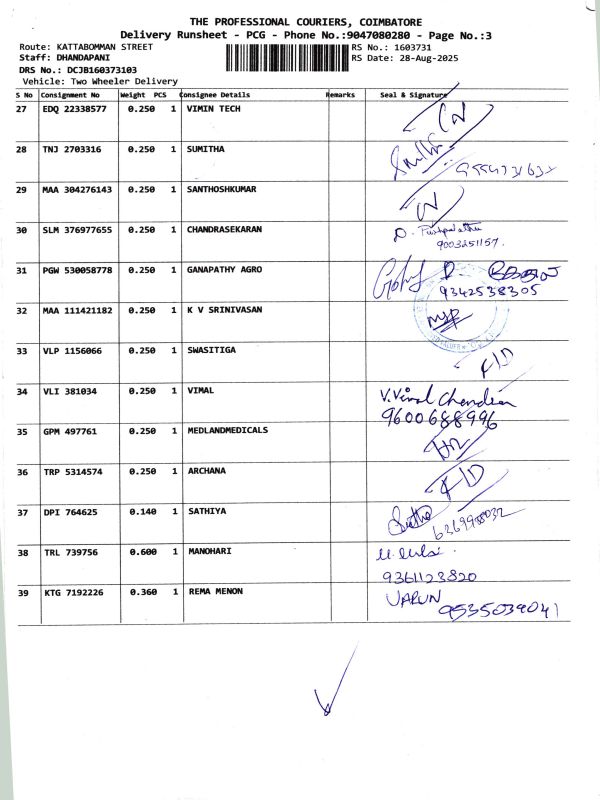 THE PROFESSIONAL COURIERS, COIMBATORE
Delivery Runsheet - PCG - Phone No.:9047080280 - Page No.:3
Route: KATTABOMMAN STREET RS No.: 1603731
Staff: DHANDAPANI RS Date: 28-Aug-2025
DRS No.: DCJB160373103
Vehicle: Two Wheeler Delivery
S No Consignment No Weight PCS Consignee Details Remarks Seal & Signature
27 EDQ 22338577 0.250 1 VIMIN TECH
28 TNJ 2703316 0.250 1 SUMITHA
29 MAA 304276143 0.250 1 SANTHOSHKUMAR
30 SLM 376977655 0.250 1 CHANDRASEKARAN
9003251157.
31 PGW 530058778 0.250 1 GANAPATHY AGRO
9342538305
32 MAA 111421182 0.250 1 K V SRINIVASAN
33 VLP 1156066 0.250 1 SWASITIGA
F/D
34 VLI 381034 0.250 1 VIMAL V.Vimal Chandran
9600688996
35 GPM 497761 0.250 1 MEDLANDMEDICALS
36 TRP 5314574 0.250 1 ARCHANA F/D
37 DPI 764625 0.140 1 SATHIYA
38 TRL 739756 0.600 1 MANOHARI
9361123820
39 KTG 7192226 0.360 1 REMA MENON VARUN
9535039041